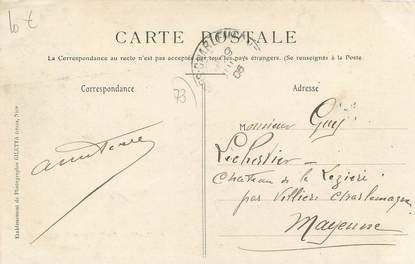 10 €
CARTE POSTALE
La Correspondance au recto n'est pas acceptée par tous les pays étrangers. (Se renseigner à la Poste
Correspondance
Adresse
73
Monsieur Guy
Château de la
par Villiers Charlemagne
Mayenne
Etablissement de Photographies GILETTA frères, Nice